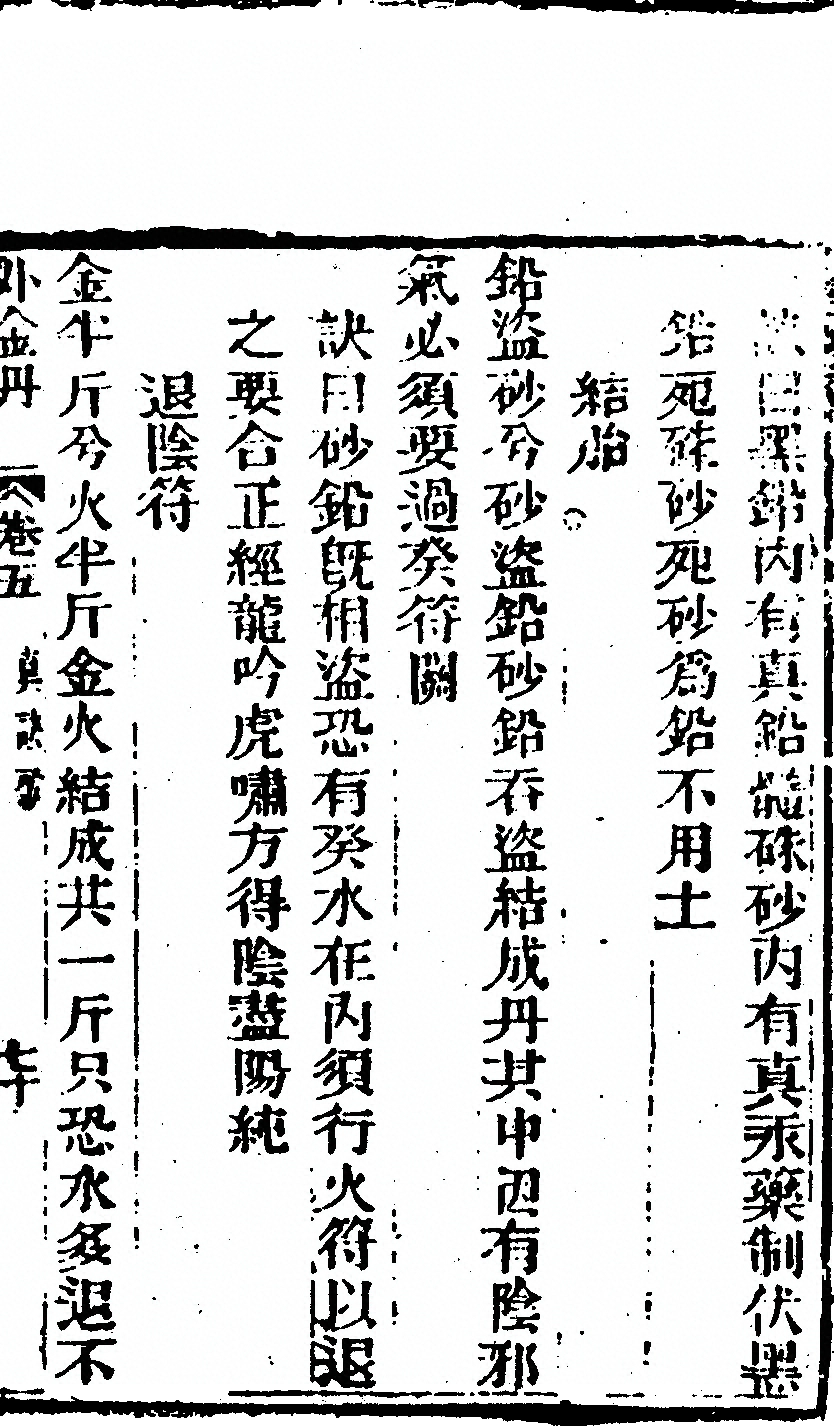 訣曰黑鉛內有真鉛髓硃砂內有真汞藥制伏黑
鉛死硃砂死砂為鉛不用土
結胎
鉛盜砂兮砂盜鉛砂鉛吞盜結成丹其中卻有陰邪
氣必須要過癸符關
訣曰砂鉛既相盜恐有癸水在內須行火符以退
之要合正經龍吟虎嘯方得陰盡陽純
退陰符
金半斤兮火半斤金火結成共一斤只恐水多退不
外金丹 卷五 真訣 七十